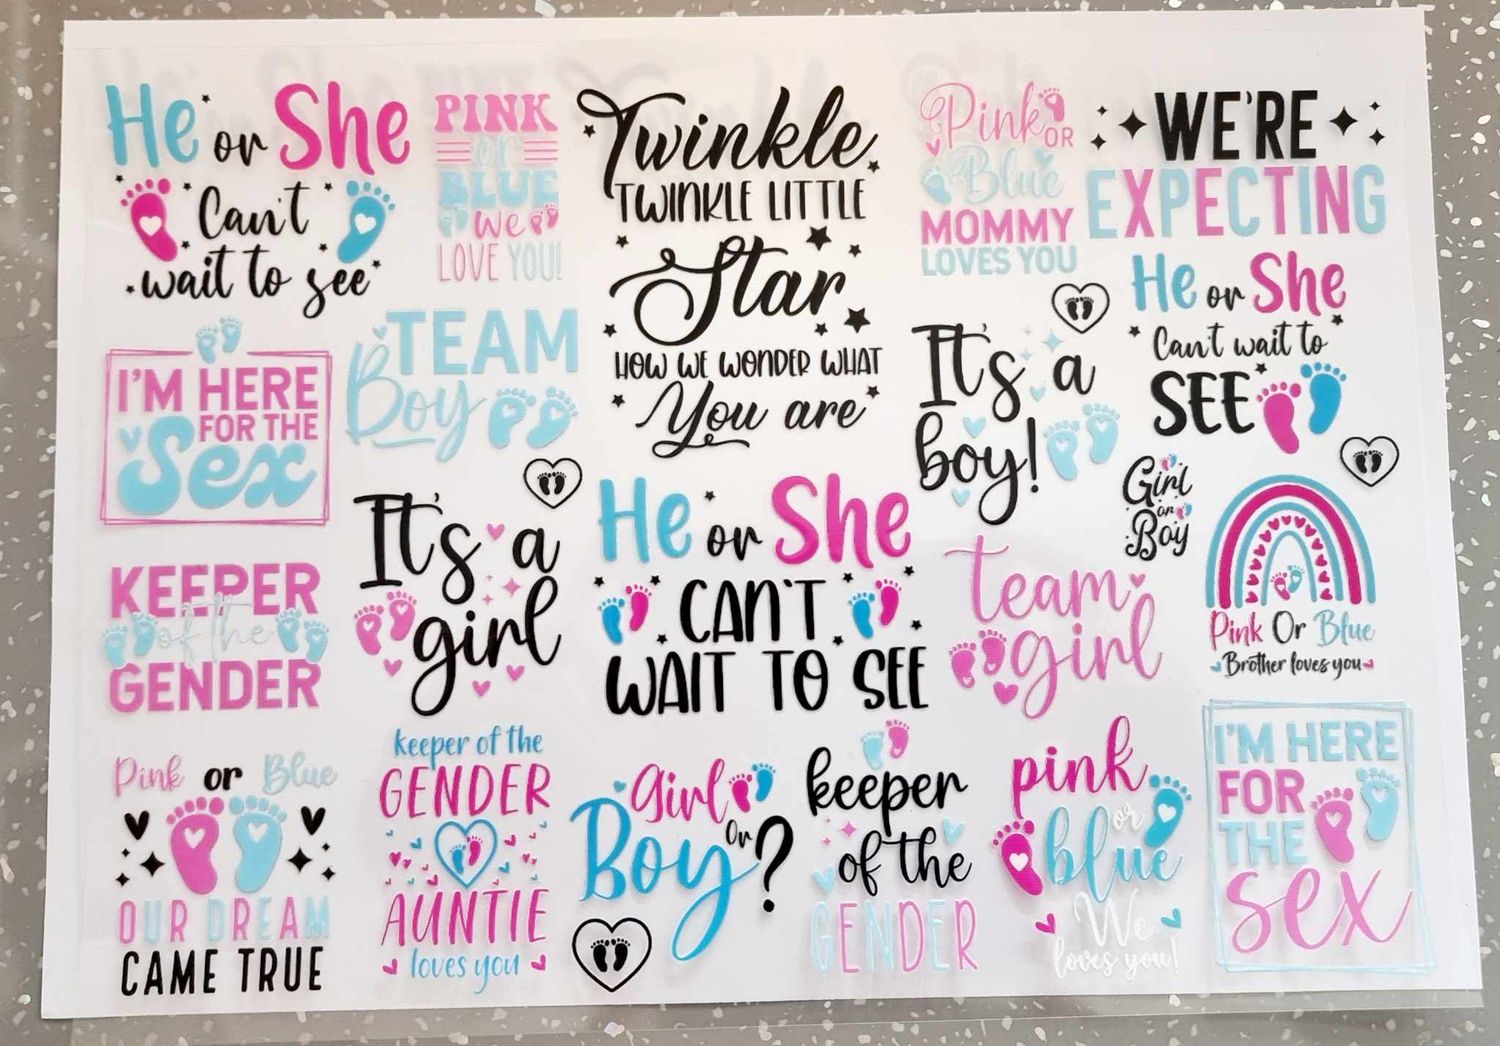 He or She
Can't
wait to see
PINK
or
BLUE
We
LOVE YOU!
Twinkle
TWINKLE LITTLE
Star
HOW WE WONDER WHAT
You are
Pink OR
Blue
MOMMY
LOVES YOU
WE'RE
EXPECTING
I'M HERE
FOR THE
Sex
TEAM
Boy
It's a
boy!
He or She
Can't wait to
SEE
Girl
or
Boy
Pink Or Blue
Brother loves you
KEEPER
of the
GENDER
It's a
girl
He or She
CAN'T
WAIT TO SEE
team
girl
Pink or Blue
OUR DREAM
CAME TRUE
keeper of the
GENDER
AUNTIE
loves you
Girl
Or
Boy?
keeper
of the
GENDER
pink
or
blue
We
loves you!
I'M HERE
FOR
THE
sex